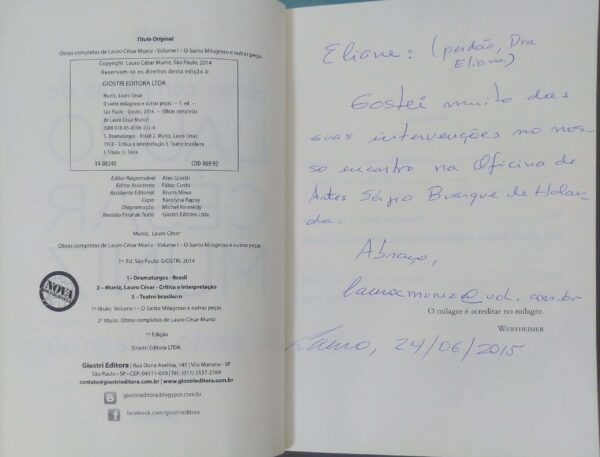 Título Original
Obras completas de Lauro César Muniz - Volume I – O Santo Milagroso e outras peças
Copyright Lauro César Muniz, São Paulo, 2014
Reservam-se os direitos desta edição à:
GIOSTRI EDITORA LTDA.
Muniz, Lauro César
O santo milagroso e outras peças. — 1. ed. —
São Paulo : Giostri, 2014. — (Obras completas
de Lauro César Muniz)
1- Dramaturgos - Brasil 2. Muniz, Lauro César,
1938 - Crítica e interpretação 3. Teatro brasileiro
I. Título. II. Série.
14-08240 CDD: 869.92
Editor Responsável Alex Giostri
Editor Assistente Fábio Costa
Assistente Editorial Bruna Miwa
Capa Karolyna Papoy
Diagramação Michel Kennedy
Revisão Final de Texto Giostri Editora Ltda.
Muniz, Lauro César
Obras completas de Lauro César Muniz - Volume I – O Santo Milagroso e outras peças
1ª Ed. São Paulo: GIOSTRI, 2014
1– Dramaturgos - Brasil
2 – Muniz, Lauro César - Crítica e interpretação
3 – Teatro brasileiro
NOVA
ORTOGRAFIA
1º título: Volume I – O Santo Milagroso e outras peças
2º título: Obras completas de Lauro César Muniz
1ª Edição
Giostri Editora LTDA.
Giostri Editora | Rua Dona Avelina, 145 | Vila Mariana - SP
São Paulo - SP - CEP: 04111-010 | Tel.: (011) 2537-2764
contato@giostrieditora.com.br - www.giostrieditora.com.br
giostrieditora.blogspot.com.br
facebook.com/giostrieditora
Eliane: (perdão, Dra
Eliane)
Gostei muito das
suas intervenções no nos-
so encontro na Oficina de
Artes Sérgio Buarque de Holan-
da.
Abraço,
laurocmuniz@uol.com.br
O milagre é acreditar no milagre.
WERTHEIMER
Lauro, 24/06/2015